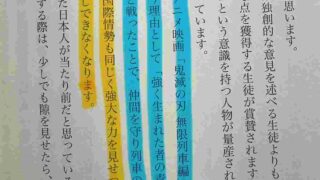 思います。
独創的な意見を述べる生徒よりも
点を獲得する生徒が賞賛されます
という意識を持つ人物が量産され
ています。
ニメ映画「鬼滅の刃 無限列車編
理由として「強く生まれた者の
と戦ったことで、仲間を守り列車の
国際情勢も同じく強大な力を見せ
しできなくなります。
た日本人が当たり前だと思ってい
する際は、少しでも隙を見せたら、